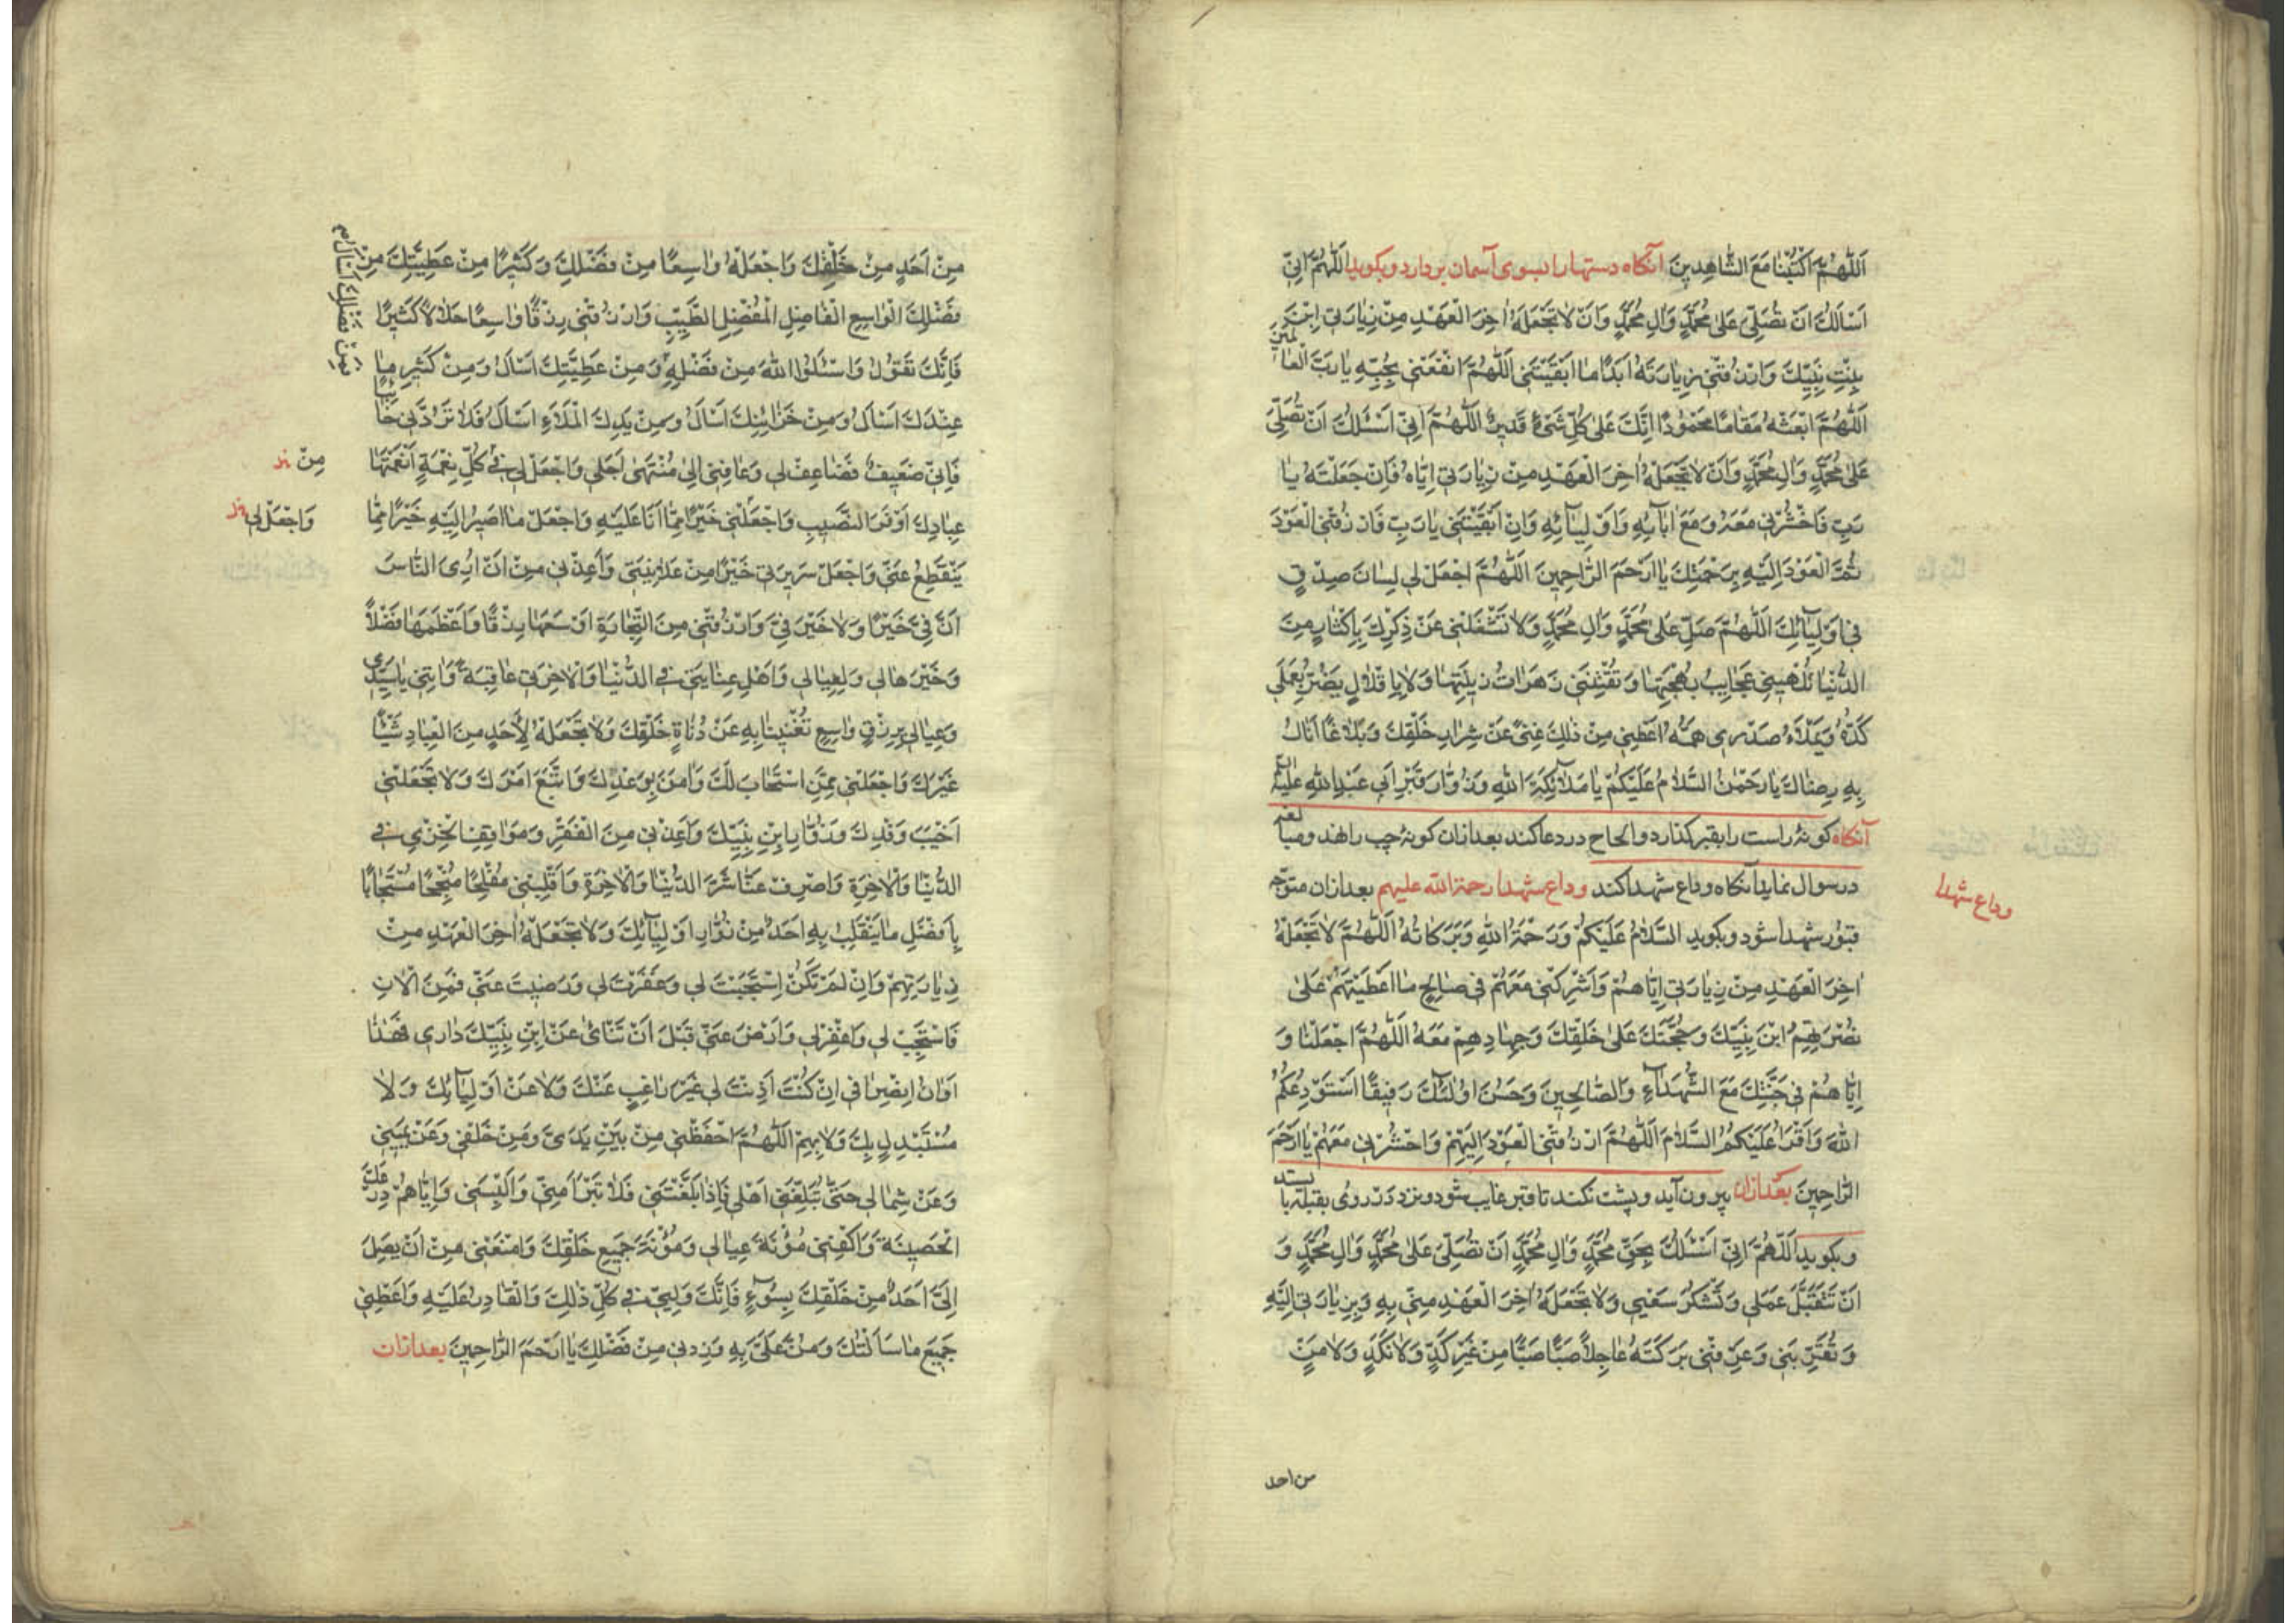 اَللّٰهُمَّ اكْتُبْنَا مَعَ الشَّاهِدِينَ آنکاه دستها را بسوی آسمان بردارد و بکوید اَللّٰهُمَّ اِنّي
اَسْاَلُكَ اَنْ تُصَلِّيَ عَلىٰ مُحَمَّدٍ وَالِ مُحَمَّدٍ وَاَنْ لاٰ تَجْعَلَهُ اٰخِرَ الْعَهْدِ مِنْ زِيٰارَتي اِبْنَ
بِنْتِ نَبِيِّكَ وَارْزُقْنِي زِيٰارَتَهُ اَبَدًا مٰا اَبْقَيْتَنِي اَللّٰهُمَّ انْفَعْنِي بِحُبِّهِ يٰا رَبَّ الْعٰالَمِينَ
اَللّٰهُمَّ ابْعَثْهُ مَقٰامًا مَحْمُودًا اِنَّكَ عَلىٰ كُلِّ شَيْءٍ قَدِيرٌ اَللّٰهُمَّ اِنّي اَسْئَلُكَ اَنْ تُصَلِّيَ
عَلىٰ مُحَمَّدٍ وَالِ مُحَمَّدٍ وَاَنْ لاٰ تَجْعَلَهُ اٰخِرَ الْعَهْدِ مِنْ زِيٰارَتي اِيّٰاهُ فَاِنْ جَعَلْتَهُ يٰا
رَبِّ فَاحْشُرْنِي مَعَهُ وَمَعَ اٰبٰآئِهِ وَاَوْلِيٰآئِهِ وَاِنْ اَبْقَيْتَنِي يٰا رَبِّ فَارْزُقْنِي الْعَوْدَ
ثُمَّ الْعَوْدَ اِلَيْهِ بِرَحْمَتِكَ يٰا اَرْحَمَ الرّٰاحِمِينَ اَللّٰهُمَّ اجْعَلْ لي لِسٰانَ صِدْقٍ
في اَوْلِيٰآئِكَ اَللّٰهُمَّ صَلِّ عَلىٰ مُحَمَّدٍ وَالِ مُحَمَّدٍ وَلاٰ تَشْغَلْنِي عَنْ ذِكْرِكَ بِاِكْثٰارٍ مِنَ
الدُّنْيٰا تُلْهِينِي عَجٰايِبُ بَهْجَتِهٰا وَتَفْتِنَنِي زَهَرٰاتُ زِينَتِهٰا وَلاٰ بِاِقْلاٰلٍ يَضُرُّ بِعَمَلي
كَدُّهُ وَيَمْلَاءُ صَدْرِي هَمُّهُ اَعْطِنِي مِنْ ذٰلِكَ غِنىً عَنْ شِرٰارِ خَلْقِكَ وَبَلاٰغًا اَنٰالُ
بِهِ رِضٰاكَ يٰا رَحْمٰنُ السَّلاٰمُ عَلَيْكُمْ يٰا مَلاٰئِكَةَ اللهِ وَزُوّٰارَ قَبْرِ اَبي عَبْدِ اللهِ عَلَيْهِ
آنکاه کونهٔ راست را بقبر کذارد و الحاح در دعا کند بعد ازان کونهٔ چپ را نهد و مبالغه
در سوال نماید آنکاه وداع شهدا کند وداع شهدا رحمة الله علیهم بعد ازان متوجه
وداع شهدا
قبور شهدا شود و بکوید السَّلاٰمُ عَلَيْكُمْ وَرَحْمَةُ اللهِ وَبَرَكٰاتُهُ اَللّٰهُمَّ لاٰ تَجْعَلْهُ
اٰخِرَ الْعَهْدِ مِنْ زِيٰارَتي اِيّٰاهُمْ وَاَشْرِكْنِي مَعَهُمْ في صٰالِحِ مٰا اَعْطَيْتَهُمْ عَلىٰ
نُصْرَتِهِمُ ابْنَ نَبِيِّكَ وَحُجَّتَكَ عَلىٰ خَلْقِكَ وَجِهٰادِهِمْ مَعَهُ اَللّٰهُمَّ اجْعَلْنٰا وَ
اِيّٰاهُمْ في جَنَّتِكَ مَعَ الشُّهَدٰآءِ وَالصّٰالِحِينَ وَحَسُنَ اُولٰئِكَ رَفِيقًا اَسْتَوْدِعُكُمُ
اللهَ وَاَقْرَاُ عَلَيْكُمُ السَّلاٰمَ اَللّٰهُمَّ ارْزُقْنِي الْعَوْدَ اِلَيْهِمْ وَاحْشُرْنِي مَعَهُمْ يٰا اَرْحَمَ
الرّٰاحِمِينَ بعد ازان بیرون آید و پشت نکند تا قبر غایب شود و نزد در روی بقبله بایستد
و بکوید اَللّٰهُمَّ اِنّي اَسْئَلُكَ بِحَقِّ مُحَمَّدٍ وَالِ مُحَمَّدٍ اَنْ تُصَلِّيَ عَلىٰ مُحَمَّدٍ وَالِ مُحَمَّدٍ وَ
اَنْ تَتَقَبَّلَ عَمَلي وَتَشْكُرَ سَعْيِي وَلاٰ تَجْعَلَهُ اٰخِرَ الْعَهْدِ مِنّي بِهِ وَبِزِيٰارَتي اِلَيْهِ
وَتُقِرَّ بِي وَعَرِّفْنِي بَرَكَتَهُ عٰاجِلاً صَبًّا صَبًّا مِنْ غَيْرِ كَدٍّ وَلاٰ نَكَدٍ وَلاٰ مَنٍّ
من احد
مِنْ اَحَدٍ مِنْ خَلْقِكَ وَاجْعَلْهُ وٰاسِعًا مِنْ فَضْلِكَ وَكَثِيرًا مِنْ عَطِيَّتِكَ مِنْ
فَضْلِكَ الْوٰاسِعِ الْفٰاضِلِ الْمُفْضِلِ الطَّيِّبِ وَارْزُقْنِي رِزْقًا وٰاسِعًا حَلاٰلاً كَثِيرًا
فَاِنَّكَ تَقُولُ وَاسْئَلُوا اللهَ مِنْ فَضْلِهِ وَمِنْ عَطِيَّتِكَ اَسْاَلُ وَمِنْ كَثِيرِ مٰا
عِنْدَكَ اَسْاَلُ وَمِنْ خَزٰائِنِكَ اَسْاَلُ وَمِنْ يَدِكَ الْمَلَاءِ اَسْاَلُ فَلاٰ تَرُدَّنِي خٰائِبًا
فَاِنّي ضَعِيفٌ فَضٰاعِفْ لي وَعٰافِنِي اِلىٰ مُنْتَهىٰ اَجَلي وَاجْعَلْ لي في كُلِّ نِعْمَةٍ اَنْعَمْتَهٰا
مِنْ
عِبٰادِكَ اَوْفَرَ النَّصِيبِ وَاجْعَلْنِي خَيْرًا مِمّٰا اَنَا عَلَيْهِ وَاجْعَلْ مٰا اَصِيرُ اِلَيْهِ خَيْرًا مِمّٰا
وَاجْعَلْ لِي
يَنْقَطِعُ عَنّي وَاجْعَلْ سَرِيرَتي خَيْرًا مِنْ عَلاٰنِيَتي وَاَعِذْنِي مِنْ اَنْ اُرِيَ النّٰاسَ
اَنَّ فِيَّ خَيْرًا وَلاٰ خَيْرَ فِيَّ وَارْزُقْنِي مِنَ التِّجٰارَةِ اَوْسَعَهٰا رِزْقًا وَاَعْظَمَهٰا فَضْلاً
وَخَيْرَهٰا لي وَلِعِيٰالي وَاَهْلِ عِنٰايَتي في الدُّنْيٰا وَالْاٰخِرَةِ عٰاقِبَةً وَاٰتِنِي يٰا سَيِّدِي
وَعِيٰالي بِرِزْقٍ وٰاسِعٍ تُغْنِينٰا بِهِ عَنْ دُنٰاةِ خَلْقِكَ وَلاٰ تَجْعَلْ لِاَحَدٍ مِنَ الْعِبٰادِ شَيْئًا
غَيْرَكَ وَاجْعَلْنِي مِمَّنِ اسْتَجٰابَ لَكَ وَاٰمَنَ بِوَعْدِكَ وَاتَّبَعَ اَمْرَكَ وَلاٰ تَجْعَلْنِي
اَخْيَبَ وَفْدِكَ وَزُوّٰارِ ابْنِ نَبِيِّكَ وَاَعِذْنِي مِنَ الْفَقْرِ وَمَوٰاقِفِ الْخِزْيِ في
الدُّنْيٰا وَالْاٰخِرَةِ وَاصْرِفْ عَنّٰا شَرَّ الدُّنْيٰا وَالْاٰخِرَةِ وَاقْلِبْنِي مُفْلِحًا مُنْجِحًا مُسْتَجٰابًا
بِاَفْضَلِ مٰا يَنْقَلِبُ بِهِ اَحَدٌ مِنْ زُوّٰارِ اَوْلِيٰآئِكَ وَلاٰ تَجْعَلْهُ اٰخِرَ الْعَهْدِ مِنْ
زِيٰارَتِهِمْ وَاِنْ لَمْ تَكُنْ اِسْتَجَبْتَ لي وَغَفَرْتَ لي وَرَضِيتَ عَنّي فَمِنَ الْاٰنِ
فَاسْتَجِبْ لي وَاغْفِرْ لي وَارْضَ عَنّي قَبْلَ اَنْ تَنْاىٰ عَنِ ابْنِ نَبِيِّكَ دٰاري فَهٰذٰا
اَوٰانُ اِنْصِرٰافي اِنْ كُنْتَ اَذِنْتَ لي غَيْرَ رٰاغِبٍ عَنْكَ وَلاٰ عَنْ اَوْلِيٰآئِكَ وَلاٰ
مُسْتَبْدِلٍ بِكَ وَلاٰ بِهِمْ اَللّٰهُمَّ احْفَظْنِي مِنْ بَيْنِ يَدَيَّ وَمِنْ خَلْفي وَعَنْ يَمِيني
وَعَنْ شِمٰالي حَتّٰى تُبَلِّغَنِي اَهْلي فَاِذٰا بَلَّغْتَنِي فَلاٰ تَبَرَّأْ مِنّي وَاَلْبِسْنِي وَاِيّٰاهُمْ دِرْعَكَ
الْحَصِينَةَ وَاكْفِنِي مَؤُنَةَ عِيٰالي وَمَؤُنَةَ جَمِيعِ خَلْقِكَ وَامْنَعْنِي مِنْ اَنْ يَصِلَ
اِلَيَّ اَحَدٌ مِنْ خَلْقِكَ بِسُوٓءٍ فَاِنَّكَ وَلِيّي في كُلِّ ذٰلِكَ وَالْقٰادِرُ عَلَيْهِ وَاَعْطِنِي
جَمِيعَ مٰا سَاَلْتُكَ وَمُنَّ عَلَيَّ بِهِ وَزِدْنِي مِنْ فَضْلِكَ يٰا اَرْحَمَ الرّٰاحِمِينَ بعد ازان